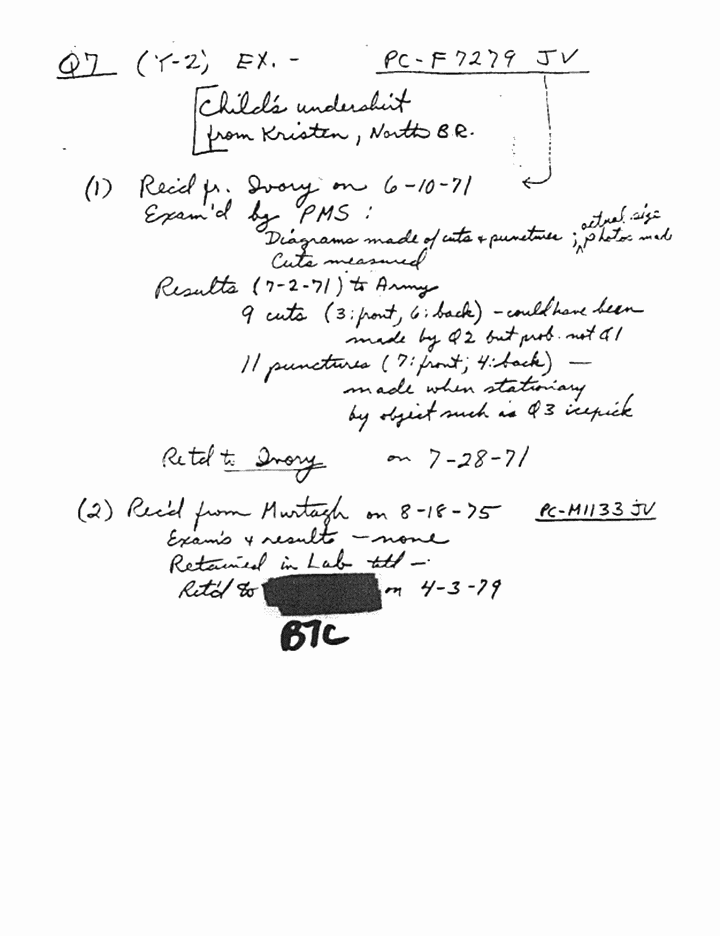 Q7 (Y-2) EX. - PC-F7279 JV
Child's undershirt
from Kristen, North B.R.
(1) Rec'd fr. Ivory on 6-10-71
Exam'd by PMS :
actual size
Diagrams made of cuts + punctures ; photos made
Cuts measured
Results (7-2-71) to Army
9 cuts (3:front, 6:back) - could have been
made by Q2 but prob. not Q1
11 punctures (7:front; 4:back) —
made when stationary
by object such as Q3 icepick
Retd to Ivory on 7-28-71
(2) Rec'd from Murtagh on 8-18-75 PC-M1133 JV
Exam's + results - none
Retained in Lab till -
Ret'd to on 4-3-79
B7C